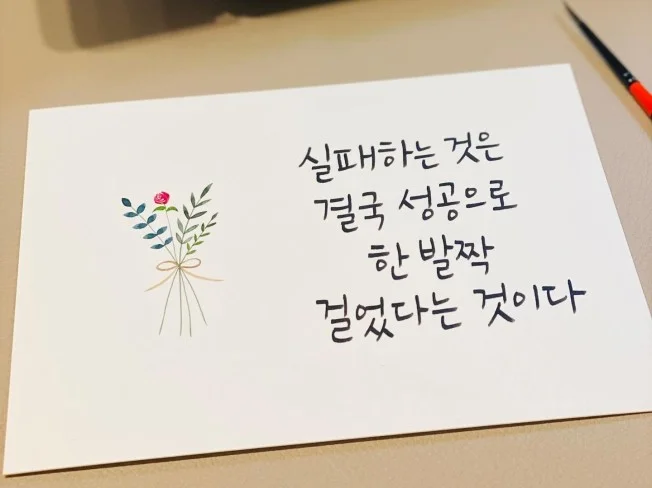 실패하는 것은
결국 성공으로
한 발짝
걸었다는 것이다